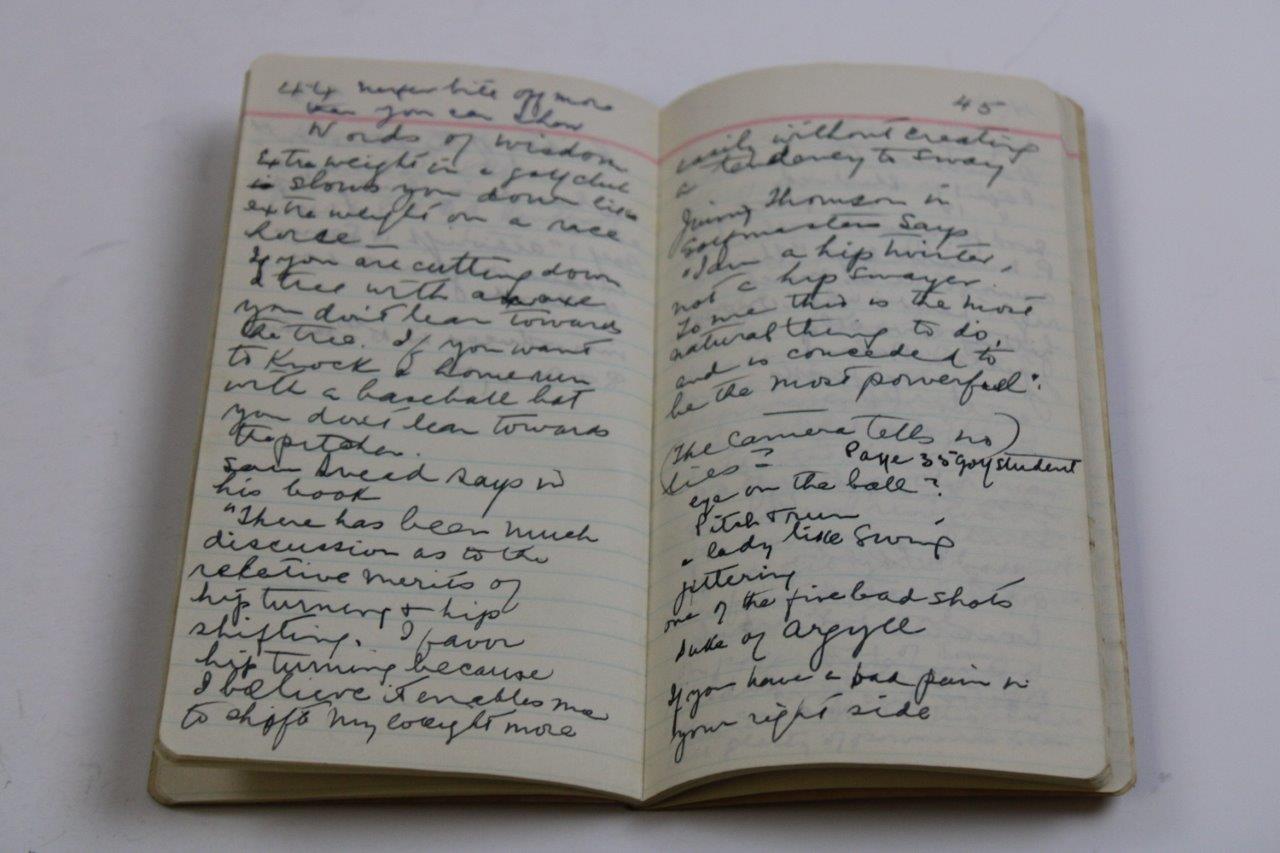 44 never bite off more
than you can chew
Words of wisdom
Extra weight in a golf club
is slows you down like
extra weight on a race
horse
If you are cutting down
a tree with an axe
you don't lean towards
the tree. If you want
to knock a home run
with a baseball bat
you don't lean towards
the pitcher.
Sam Snead says in
his book
"There has been much
discussion as to the
relative merits of
hip turning & hip
shifting. I favor
hip turning because
I believe it enables me
to shift my weight more
45
easily without creating
a tendency to sway
Jimmy Thomson in
Golfmasters says
"I am a hip twister,
not a hip swayer.
To me this is the most
natural thing to do,
and is conceded to
be the most powerful".
(The camera tells no)
(lies = Page 35 golf student
eye on the ball?
Pitch & run
a lady like swing
jittering
one of the five bad shots
Duke of Argyll
If you have a bad pain in
your right side